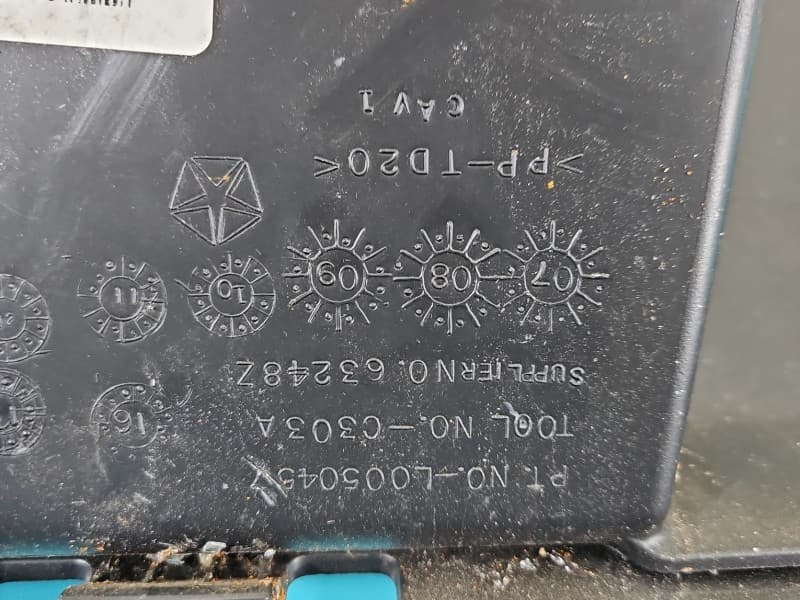 PT. NO.-L0050457
TOOL NO.-C303A
SUPPLIER NO. 63248Z
16
07 08 09 10 11
>PP-TD20<
CAV 1